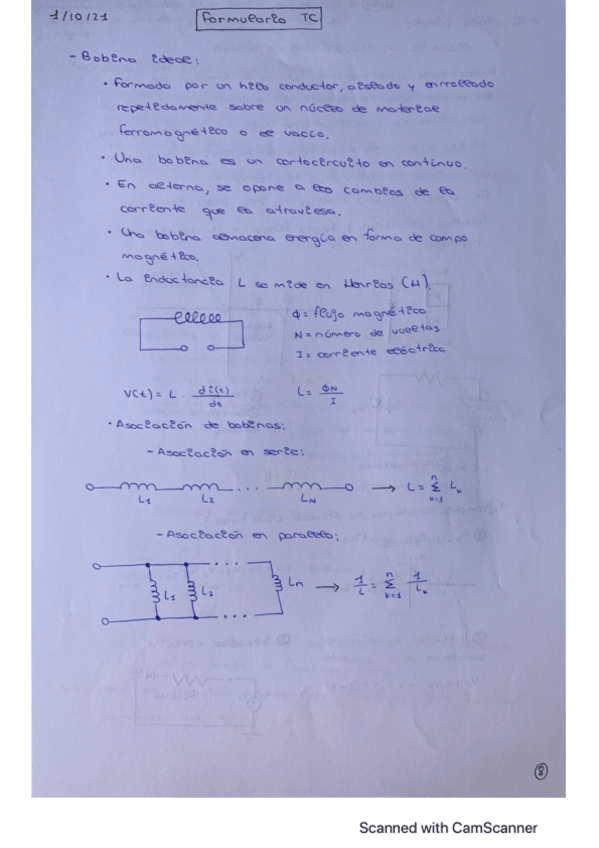 1/10/21
Formulario TC
- Bobina ideal:
• Formado por un hilo conductor, aislado y enrrollado
repetidamente sobre un núcleo de material
ferromagnético o al vacío.
• Una bobina es un cortocircuito en continuo.
• En alterna, se opone a los cambios de la
corriente que la atraviesa.
• Una bobina almacena energía en forma de campo
magnético.
• La inductancia L se mide en Henrios (H).
Φ = flujo magnético
N = número de vueltas
I = corriente eléctrica
V(t) = L · di(t)/dt
L = ΦN/I
• Asociación de bobinas:
- Asociación en serie:
L1 L2 ... LN → L = Σ(k=1, n) Lk
- Asociación en paralelo:
L1 L2 ... Ln → 1/L = Σ(k=1, n) 1/Lk
8
Scanned with CamScanner